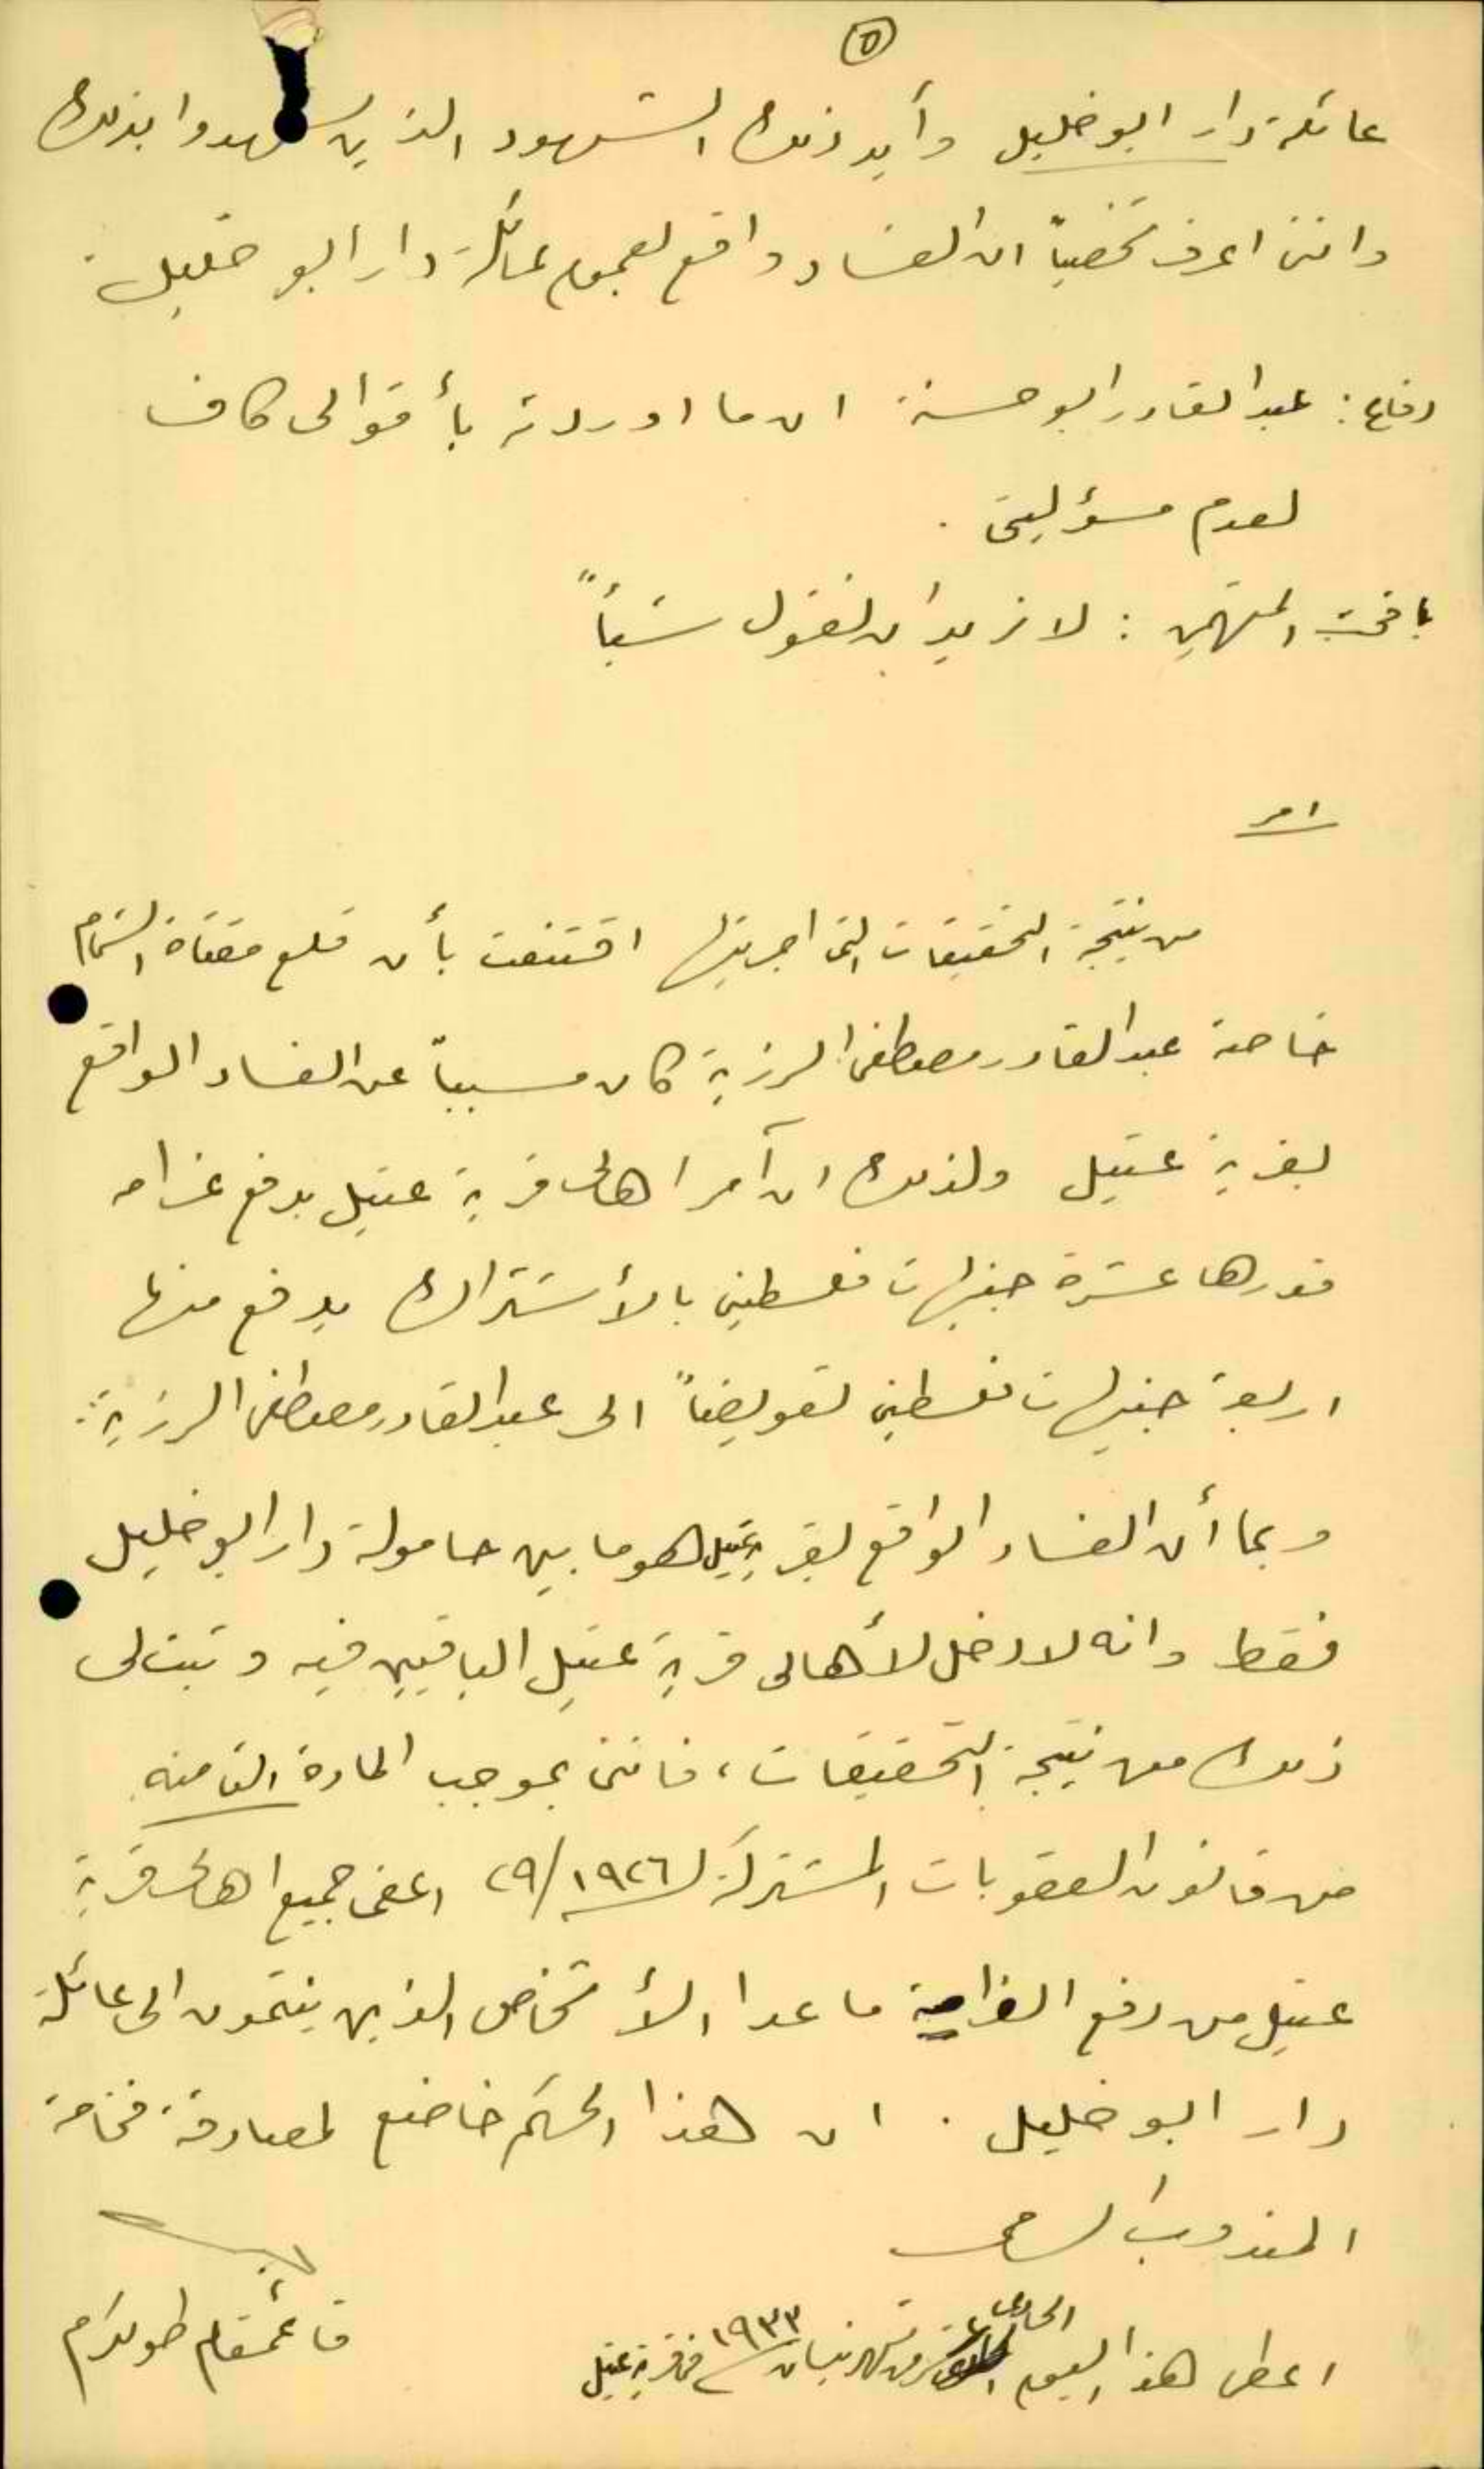 ٥
عائلة دار ابو خليل وأيد ذلك الشهود الذين شهدوا بذلك
وانني اعرف شخصياً ان الفساد واقع لعموم عائلة دار ابو خليل.
دفاع: عبد القادر ابو حسنة ان ما اوردته بأقوالي كاف
لعدم مسؤليتي.
باقي المتهمين: لا نريد ان نقول شيئاً
امر
من نتيجة التحقيقات التي اجريتها اقتنعت بأن قلع مقتاة الشمام
خاصة عبد القادر مصطفى الرزية كان مسبباً عن الفساد الواقع
بقرية عتيل ولذلك ان آمر اهالي قرية عتيل بدفع غرامه
قدرها عشرة جنيهات فلسطيني بالأشتراك يدفع منها
اربعة جنيهات فلسطيني تعويضاً الى عبد القادر مصطفى الرزية.
وبما أن الفساد الواقع بقرية عتيل هو ما بين حامولة دار ابو خليل
فقط وانه لا دخل لأهالي قرية عتيل الباقيين فيه وثبت لي
ذلك من نتيجة التحقيقات، فانني بموجب المادة الثامنه
من قانون العقوبات المشتركة لسنة ١٩٢٦/٢٩ اعفي جميع اهالي قرية
عتيل من دفع الغرامة ما عدا الأشخاص الذين ينتمون الى عائلة
دار ابو خليل. ان هذا الحكم خاضع لمصادقة فخامة
المندوب السامي
قائمقام طولكرم
اعطي هذا اليوم الحادي عشر من شهر نيسان سنة ١٩٣٣ في قرية عتيل